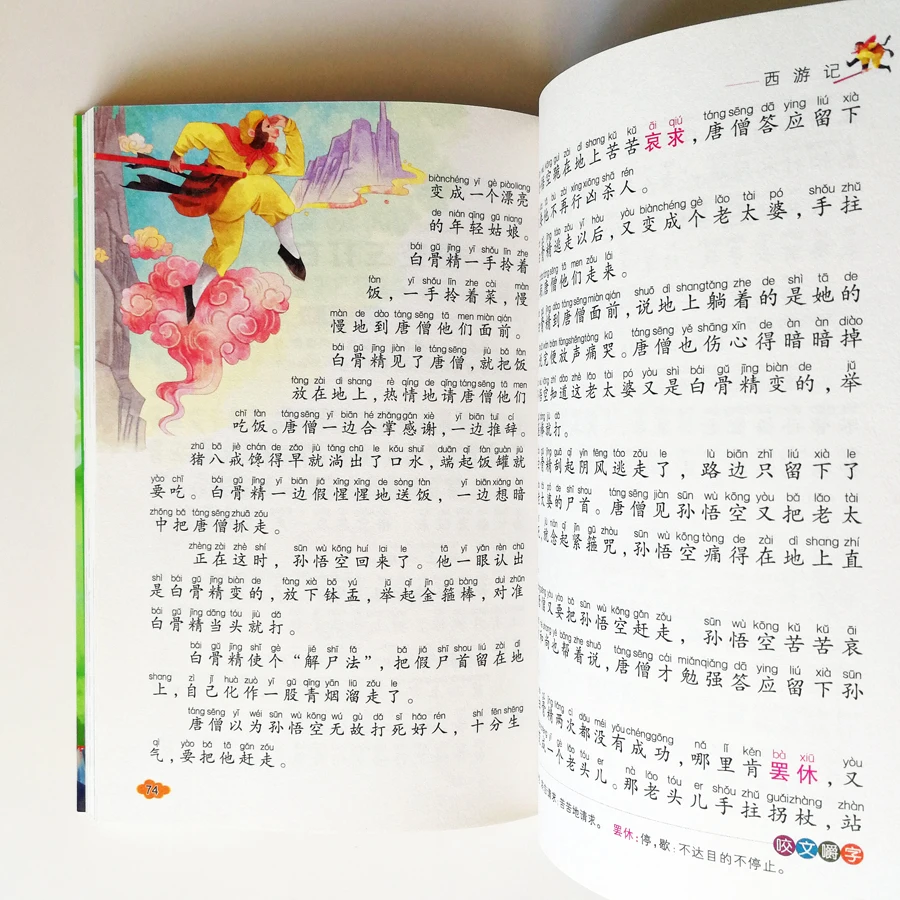 biànchéng yī gè piàoliang
变成一个漂亮
de nián qīng gū niang
的年轻姑娘。
bái gǔ jīng yī shǒu līn zhe
白骨精一手拎着
fàn yī shǒu līn zhe cài màn
饭，一手拎着菜，慢
màn de dào táng sēng tā men miàn qián
慢地到唐僧他们面前。
bái gǔ jīng jiàn le táng sēng jiù bǎ fàn
白骨精见了唐僧，就把饭
fàng zài dì shang rè qíng de qǐng táng sēng tā men
放在地上，热情地请唐僧他们
chī fàn táng sēng yī biān hé zhǎng gǎn xiè yī biān tuī cí
吃饭。唐僧一边合掌感谢，一边推辞。
zhū bā jiè chán de zǎo jiù tǎng chū le kǒu shuǐ duān qǐ fàn guàn jiù
猪八戒馋得早就淌出了口水，端起饭罐就
yào chī bái gǔ jīng yī biān jiǎ xīng xīng de sòng fàn yī biān xiǎng àn
要吃。白骨精一边假惺惺地送饭，一边想暗
zhōng bǎ táng sēng zhuā zǒu
中把唐僧抓走。
zhèng zài zhè shí sūn wù kōng huí lai le tā yī yǎn rèn chū
正在这时，孙悟空回来了。他一眼认出
shì bái gǔ jīng biàn de fàng xià bō yú jǔ qǐ jīn gū bàng duì zhǔn
是白骨精变的，放下钵盂，举起金箍棒，对准
bái gǔ jīng dāng tóu jiù dǎ
白骨精当头就打。
bái gǔ jīng shǐ gè jiě shī fǎ bǎ jiǎ shī shǒu liú zài dì
白骨精使个“解尸法”，把假尸首留在地
shang zì jǐ huà zuò yī gǔ qīng yān liū zǒu le
上，自己化作一股青烟溜走了。
táng sēng yǐ wéi sūn wù kōng wú gù dǎ sǐ hǎo rén shí fēn shēng
唐僧以为孙悟空无故打死好人，十分生
qì yào bǎ tā gǎn zǒu
气，要把他赶走。
74
西游记
kōng guì zài dì shang kǔ kǔ āi qiú táng sēng dā ying liú xià
悟空跪在地上苦苦哀求，唐僧答应留下
bù zài xíng xiōng shā rén
他不再行凶杀人。
jīng táo zǒu yǐ hòu yòu biànchéng gè lǎo tài pó shǒu zhǔ
骨精逃走以后，又变成个老太婆，手拄
táng sēng tā men zǒu lái
唐僧他们走来。
dào táng sēng miàn qián shuō dì shang tǎng zhe de shì tā de
骨精到唐僧面前，说地上躺着的是她的
biàn fàng shēng tòng kū táng sēng yě shāng xīn de àn àn diào
便放声痛哭。唐僧也伤心得暗暗掉
kōng zhī dào zhè lǎo tài pó yòu shì bái gǔ jīng biàn de jǔ
悟空知道这老太婆又是白骨精变的，举
jiù dǎ
棒就打。
jīng guā qǐ yīn fēng táo zǒu le lù biān zhǐ liú xià le
骨精刮起阴风逃走了，路边只留下了
tài pó de shī shou táng sēng jiàn sūn wù kōng yòu bǎ lǎo tài
太婆的尸首。唐僧见孙悟空又把老太
jiù niàn qǐ jǐn gū zhòu sūn wù kōng tòng de zài dì shang zhí
就念起紧箍咒，孙悟空痛得在地上直
sēng yòu yào bǎ sūn wù kōng gǎn zǒu sūn wù kōng kǔ kǔ āi
僧又要把孙悟空赶走，孙悟空苦苦哀
shàng yě bāng zhe shuō táng sēng cái miǎnqiǎng dā ying liú xià sūn
和尚也帮着说，唐僧才勉强答应留下孙
jīng liǎng cì dōu méi yǒu chénggōng nǎ lǐ kěn bà xiū yòu
骨精两次都没有成功，哪里肯罢休，又
yī gè lǎo tóu er nà lǎo tóu er shǒu zhǔ guǎizhàng zhàn
一个老头儿。那老头儿手拄拐杖，站
请求：苦苦地请求。 罢休：停，歇：不达目的不停止。
咬文嚼字